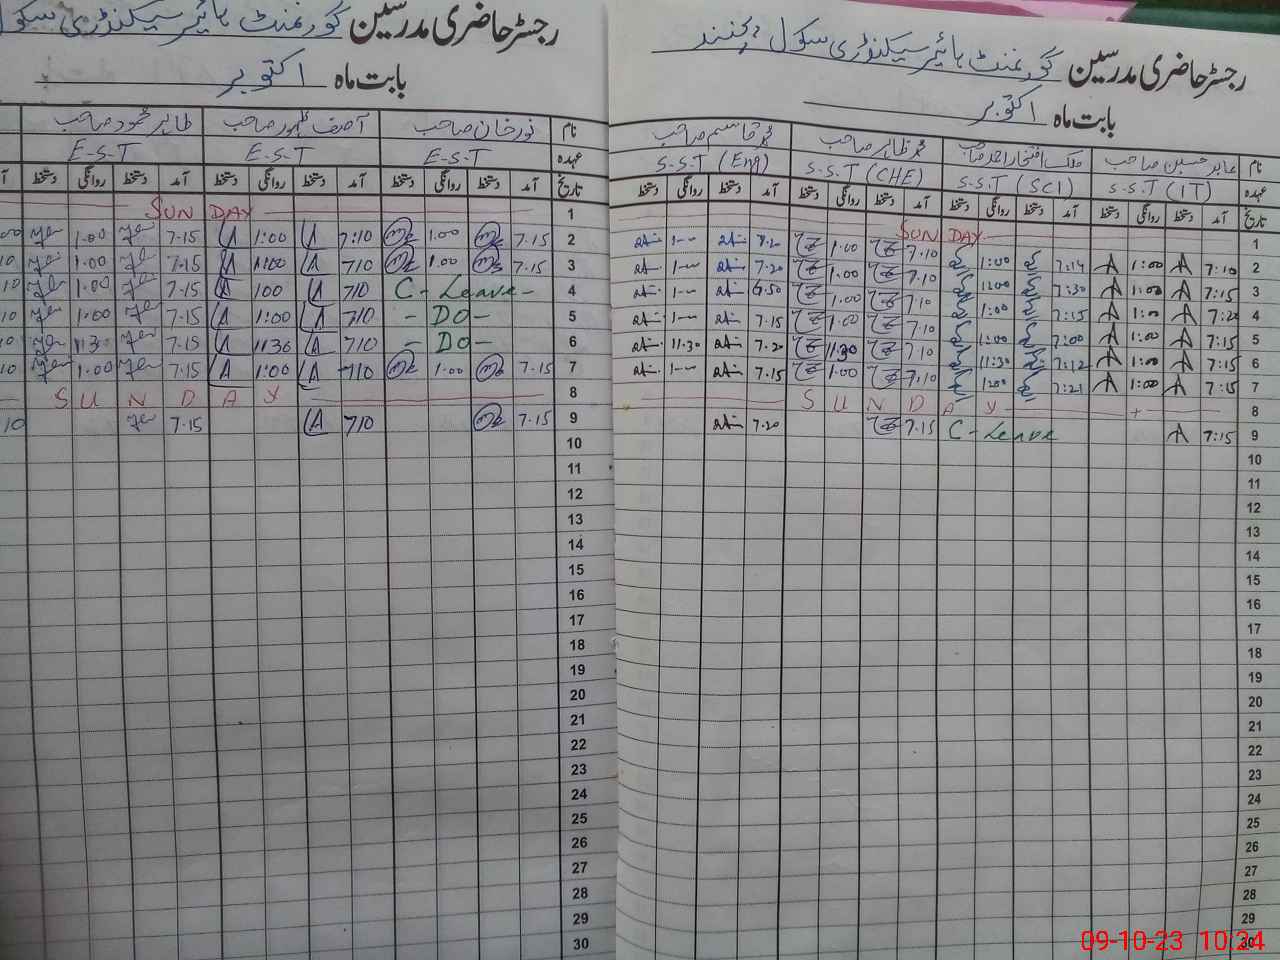 رجسٹر حاضری مدرسین گورنمنٹ ہائیر سیکنڈری سکول
بابت ماہ اکتوبر
نام عابد حسین صاحب ملک افتخار احمد صاحب محمد طاہر صاحب محمد قاسم صاحب
عہدہ S.S.T (IT) S.S.T (SCI) S.S.T (CHE) S.S.T (Eng)
تاریخ آمد دستخط روانگی دستخط آمد دستخط روانگی دستخط آمد دستخط روانگی دستخط آمد دستخط روانگی دستخط
1 SUN DAY
2 7:10 1:00 7:14 1:00 7.10 1.00 7.20 1-00
3 7:15 1:00 7:30 1:00 7.10 1.00 7.20 1-00
4 7:20 1:00 7:15 1:00 7.10 1.00 6.50 1-00
5 7:15 1:00 7:00 1:00 7.10 1.00 7.15 1-00
6 7:15 1:00 7:12 11:30 7.10 11.30 7.20 11.30
7 7:15 1:00 7:21 1:00 7.10 1.00 7.15 1-00
8 SUNDAY
9 7:15 C-Leave 7.15 7.20
10
11
12
13
14
15
16
17
18
19
20
21
22
23
24
25
26
27
28
29
30
رجسٹر حاضری مدرسین گورنمنٹ ہائیر سیکنڈری سکول
بابت ماہ اکتوبر
نام نور خان صاحب آصف ظہور صاحب طاہر محمود صاحب
عہدہ E-S-T E-S-T E-S-T
تاریخ آمد دستخط روانگی دستخط آمد دستخط روانگی دستخط آمد دستخط روانگی دستخط
1 SUN DAY
2 7.15 1.00 7:10 1:00 7.15 1.00
3 7.15 1.00 710 1:00 7.15 1.00
4 C-Leave- 710 100 7.15 1.00
5 -DO- 710 1:00 7.15 1.00
6 -DO- 710 1130 7.15 11.30
7 7.15 1.00 710 1:00 7.15 1.00
8 SUNDAY
9 7.15 710 7.15
10
11
12
13
14
15
16
17
18
19
20
21
22
23
24
25
26
27
28
29
30
09-10-23 10:24